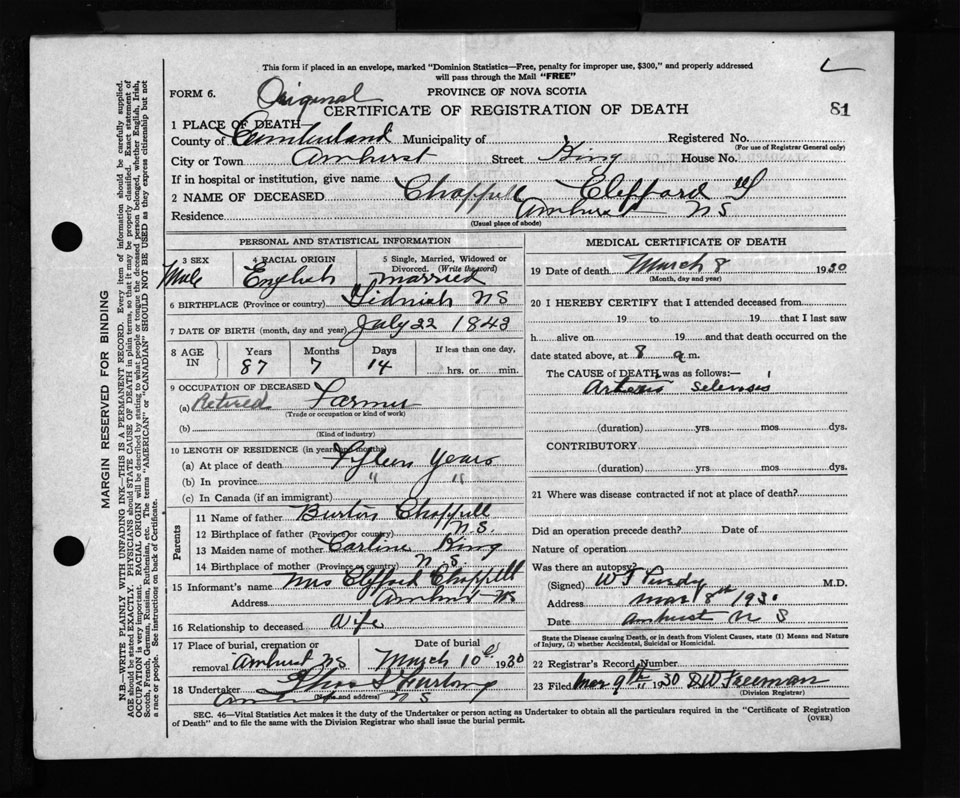 This form if placed in an envelope, marked "Dominion Statistics—Free, penalty for improper use, $300," and properly addressed
will pass through the Mail "FREE"
FORM 6. Original PROVINCE OF NOVA SCOTIA
CERTIFICATE OF REGISTRATION OF DEATH 81
1 PLACE OF DEATH—
County of Cumberland Municipality of Registered No.
(For use of Registrar General only)
City or Town Amherst Street King House No.
If in hospital or institution, give name
2 NAME OF DECEASED Chappell Clifford W
Residence Amherst NS
(Usual place of abode)
PERSONAL AND STATISTICAL INFORMATION
3 SEX 4 RACIAL ORIGIN 5 Single, Married, Widowed or
Divorced. (Write the word)
Male English Married
6 BIRTHPLACE (Province or country) Tidnish NS
7 DATE OF BIRTH (month, day and year) July 22 1842
8 AGE IN Years Months Days If less than one day,
87 7 14 hrs. or min.
9 OCCUPATION OF DECEASED
(a) Retired Farmer
(Trade or occupation or kind of work)
(b)
(Kind of industry)
10 LENGTH OF RESIDENCE (in years and months)
(a) At place of death Fifteen years
(b) In province " "
(c) In Canada (if an immigrant)
Parents
11 Name of father Chappell
12 Birthplace of father (Province or country) N.S.
13 Maiden name of mother Carline King
14 Birthplace of mother (Province or country) N S.
15 Informant's name Mrs Clifford Chappell
Address Amherst NS
16 Relationship to deceased Wife
17 Place of burial, cremation or Date of burial
removal Amherst NS March 10th 1930
18 Undertaker Furlong
(Name and address) Amherst N S
MEDICAL CERTIFICATE OF DEATH
19 Date of death March 8 1930
(Month, day and year)
20 I HEREBY CERTIFY that I attended deceased from
19 to 19 that I last saw
h alive on 19 and that death occurred on the
date stated above, at 8 a m.
The CAUSE of DEATH was as follows:—
Arterio selerosis
(duration) yrs mos dys.
CONTRIBUTORY
(duration) yrs mos dys.
21 Where was disease contracted if not at place of death?
Did an operation precede death? Date of
Nature of operation
Was there an autopsy?
(Signed) W T Purdy M.D.
Address Mar 8th 1930
Date Amherst N S
State the Disease causing Death, or in death from Violent Causes, state (1) Means and Nature
of Injury, (2) whether Accidental, Suicidal or Homicidal.
22 Registrar's Record Number
23 Filed Mar 9th 1930 DW Freeman
(Division Registrar)
SEC. 46—Vital Statistics Act makes it the duty of the Undertaker or person acting as Undertaker to obtain all the particulars required in the "Certificate of Registration
of Death" and to file the same with the Division Registrar who shall issue the burial permit.
(OVER)
MARGIN RESERVED FOR BINDING
N.B.—WRITE PLAINLY WITH UNFADING INK—THIS IS A PERMANENT RECORD. Every item of information should be carefully supplied.
AGE should be stated EXACTLY. PHYSICIANS should STATE CAUSE OF DEATH in plain terms, so that it may be properly classified. Exact statement of
OCCUPATION is very important. RACIAL ORIGIN will be described by stating to what people or tongue the deceased person belonged, whether English, Irish,
Scotch, French, German, Russian, Ruthenian, etc. The terms "AMERICAN" or "CANADIAN" SHOULD NOT BE USED as they express citizenship but not
a race or people. See instructions on back of Certificate.